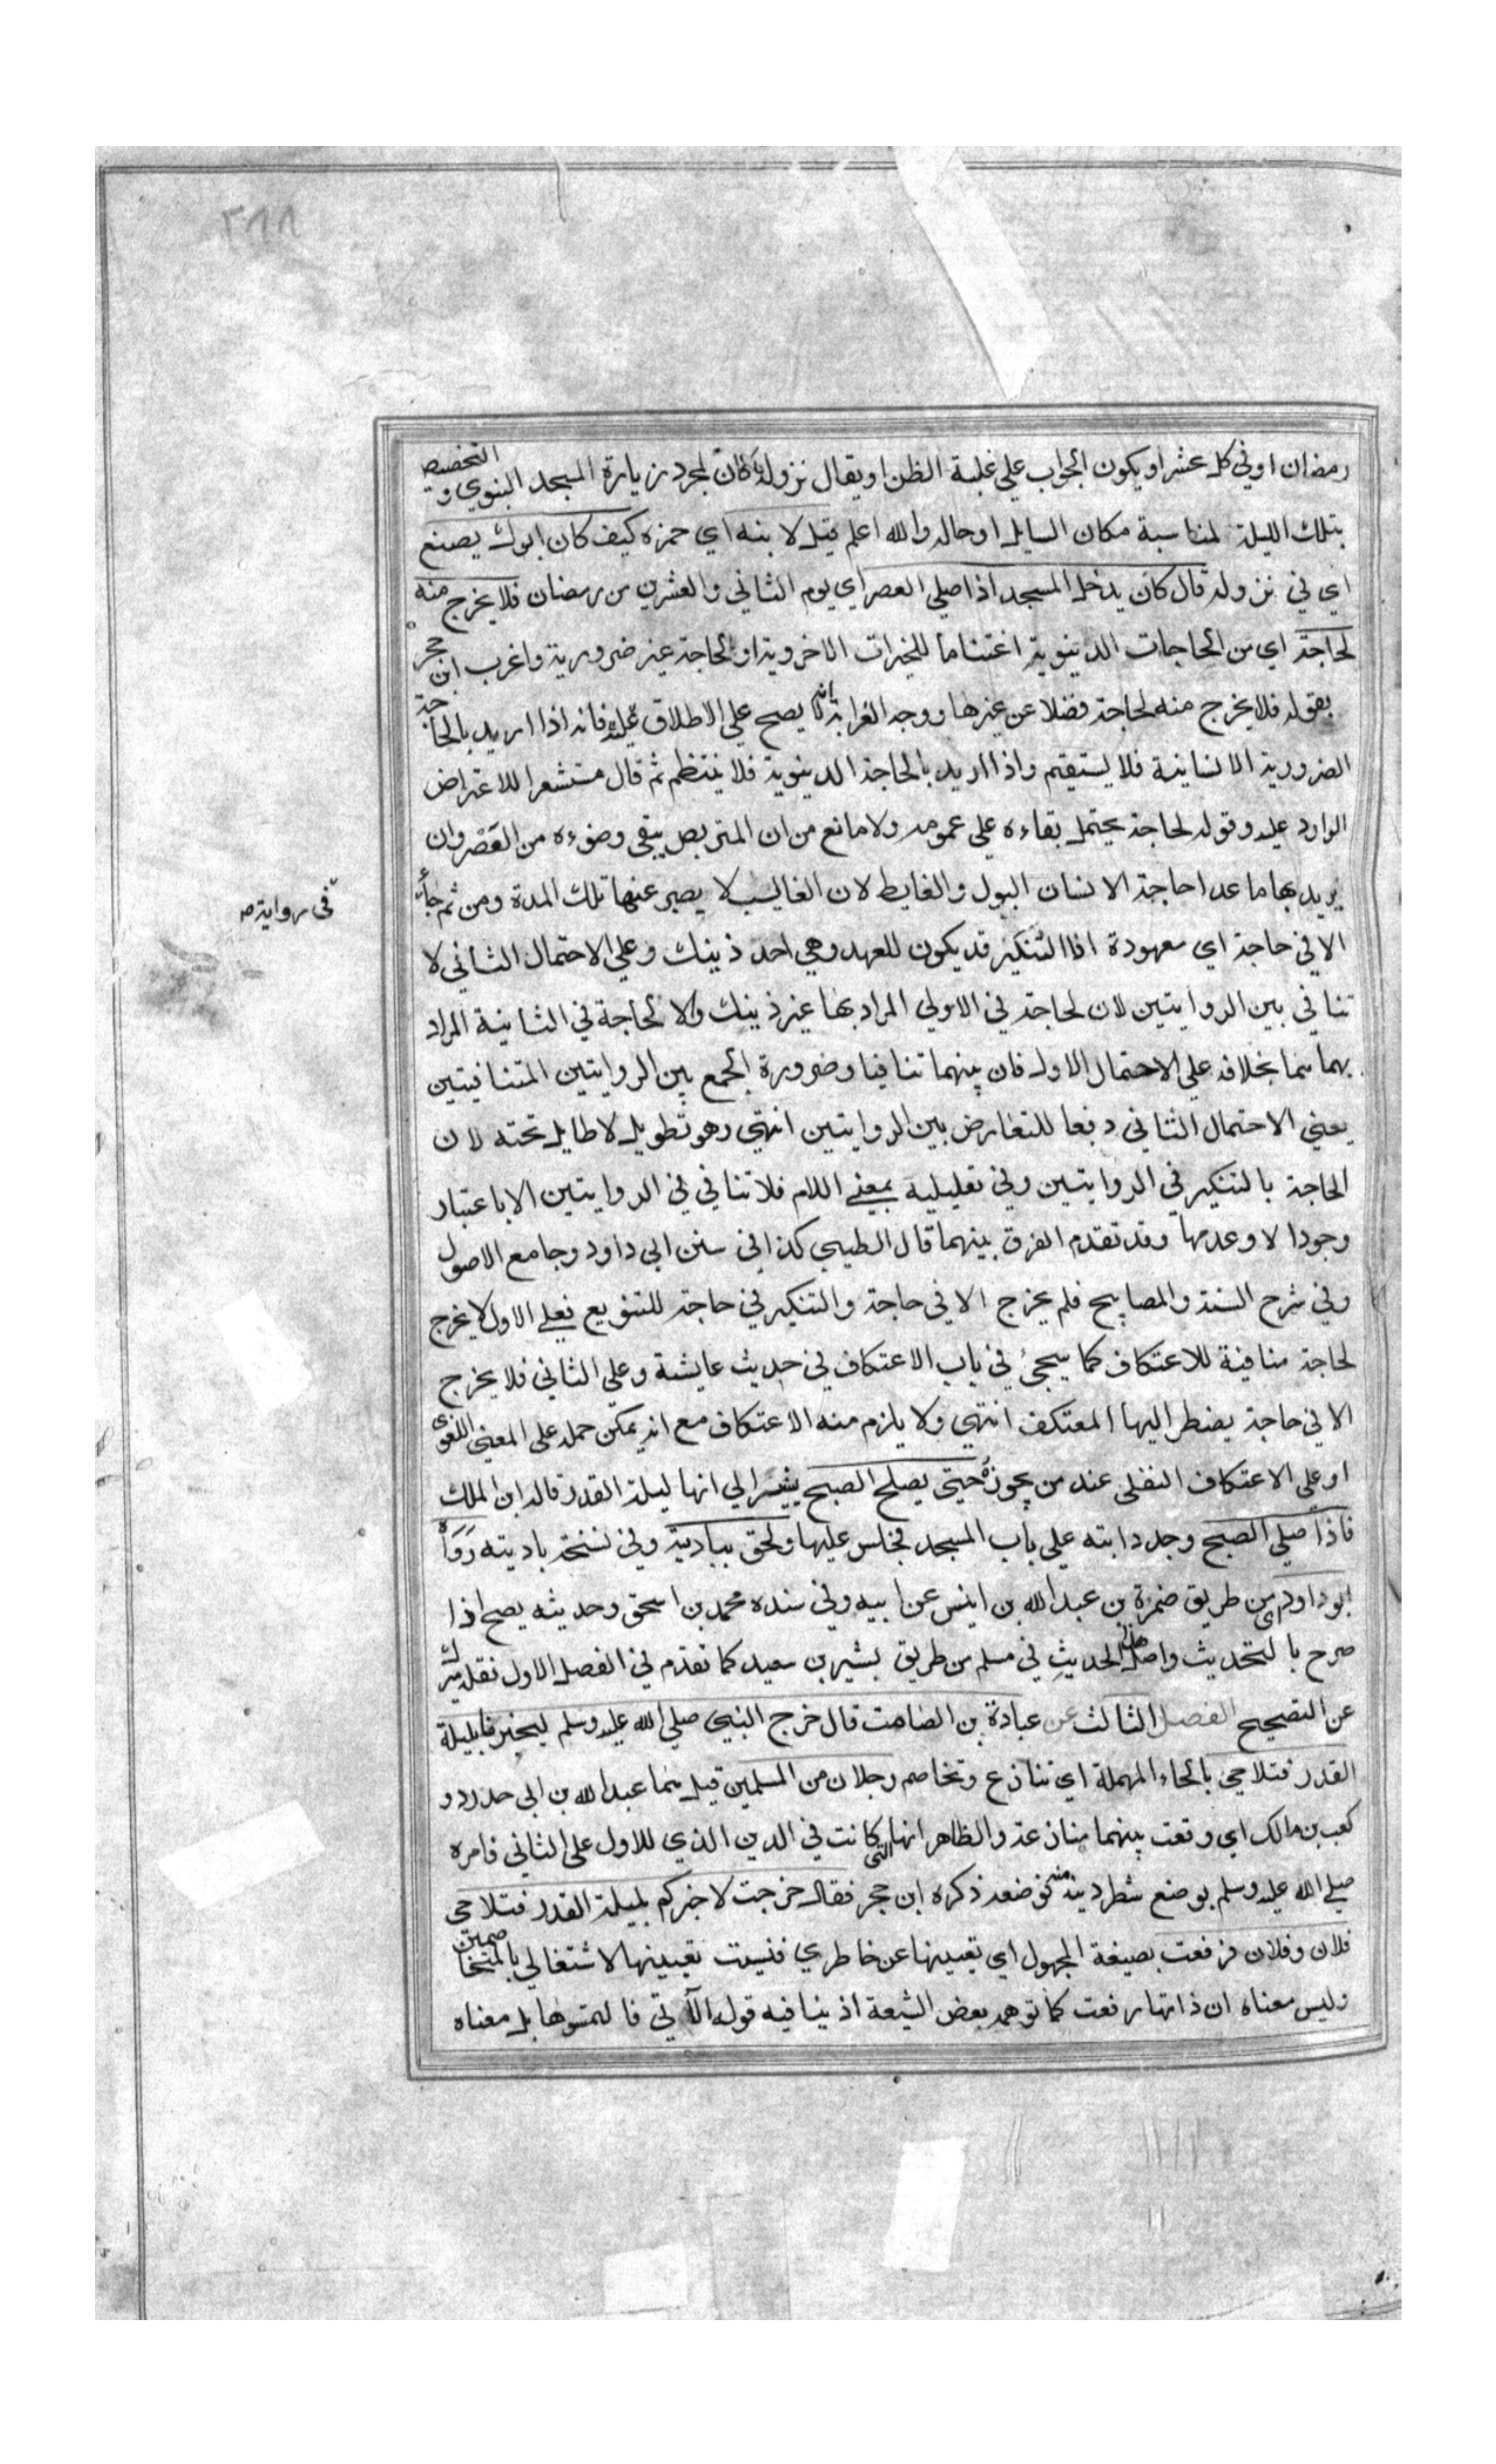 ٢٨٨
رمضان او في كل عشر او يكون الجواب علي غلبة الظن او يقال نزوله كان لمجرد زيارة المسجد النبوي و التخصيص
بتلك الليلة لمناسبة مكان السايل او حاله والله اعلم قيل لابنه اي حمزه كيف كان ابوك يصنع
اي في نزوله قال كان يدخل المسجد اذا صلي العصر اي يوم الثاني والعشرين من رمضان فلا يخرج منه
لحاجة اي من الحاجات الدنيوية اغتناما للخيرات الاخروية او لحاجة غير ضرورية واغرب ابن حجر
بقوله فلا يخرج منه لحاجة فضلا عن غيرها ووجه الغرابة انه لا يصح علي الاطلاق فانه اذا اريد بالحاجة
الضرورية الانسانية فلا يستقيم واذا اريد بالحاجة الدنيوية فلا ينتظم ثم قال مستشعرا للاعتراض
الوارد عليه وقوله لحاجة يحتمل بقاءه علي عمومه ولا مانع من ان المتربص يبقي وضوءه من العصر وان
يريد بها ما عدا حاجة الانسان البول والغايط لان الغالب لا يصبر عنها تلك المدة ومن ثم جأت
في رواية صح
الا في حاجة اي معهودة اذا التنكير قد يكون للعهد وهي احد ذينك وعلي الاحتمال الثاني لا
تنافي بين الروايتين لان لحاجة في الاولي المراد بها غير ذينك والا لحاجة في الثانية المراد
بهما هما بخلافه علي الاحتمال الاول فان بينهما تنافيا وضرورة الجمع بين الروايتين المتنافيتين
يعني الاحتمال الثاني دفعا للتعارض بين الروايتين انتهي وهو تطويل لا طايل تحته لان
الحاجة بالتنكير في الروايتين وفي تعليلية بمعني اللام فلا تنافي في الروايتين الا باعتبار
وجود الا وعدمها وقد تقدم الفرق بينهما قال الطيبي كذا في سنن ابي داود وجامع الاصول
وفي شرح السنة والمصابيح فلم يخرج الا في حاجة والتنكير في حاجة للتنويع فعلي الاول لا يخرج
لحاجة منافية للاعتكاف كما سيجئ في باب الاعتكاف في حديث عايشة وعلي الثاني فلا يخرج
الا في حاجة يضطر اليها المعتكف انتهي ولا يلزم منه الاعتكاف مع انه يمكن حمله علي المعني اللغوي
او علي الاعتكاف النفلي عند من يجوزه حتي يصلي الصبح يشير الي انها ليلة القدر قاله ابن الملك
فاذا صلي الصبح وجد دابته علي باب المسجد فجلس عليها ولحق بباديته وفي نسخة باديته رَوَاهُ
ابو داود من طريق ضمرة بن عبد الله بن انيس عن ابيه وفي سنده محمد بن اسحق وحديثه يصح اذا
صرح بالتحديث واصل الحديث في مسلم من طريق بشير بن سعيد كما تقدم في الفصل الاول نقله ميرك
عن التصحيح الفصل الثالث عن عبادة بن الصامت قال خرج النبي صلي الله عليه وسلم ليخبرنا بليلة
القدر فتلاحي بالحاء المهملة اي تنازع وتخاصم رجلان من المسلمين قيل هما عبد الله بن ابي حدرد و
كعب بن مالك اي وقعت بينهما منازعة والظاهر انها التي كانت في الدين الذي للاول علي الثاني فامره
صلي الله عليه وسلم بوضع شطر دينه منه فوضعه ذكره ابن حجر فقال خرجت لاخبركم بليلة القدر فتلاحي
فلان وفلان فرفعت بصيغة المجهول اي تعيينها عن خاطري فنسيت تعيينها لاشتغالي بالمتخاصمين
وليس معناه ان ذاتها رفعت كما توهمه بعض الشيعة اذ ينافيه قوله الآتي فالتمسوها بل معناه